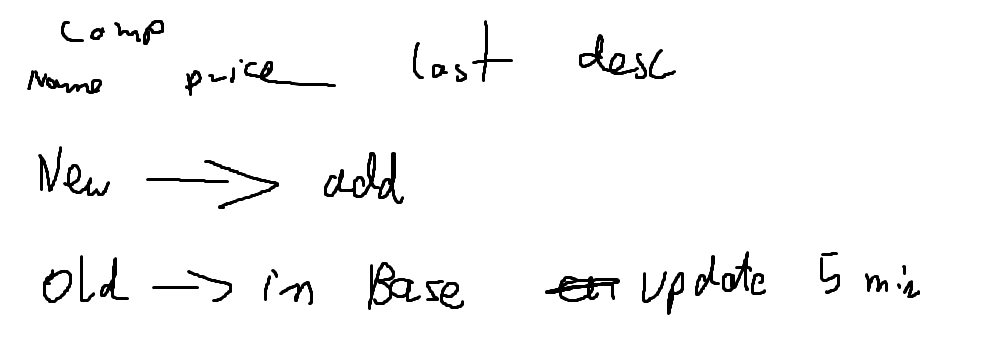 Comp
Name price last desc
New → add
Old → in Base update 5 min